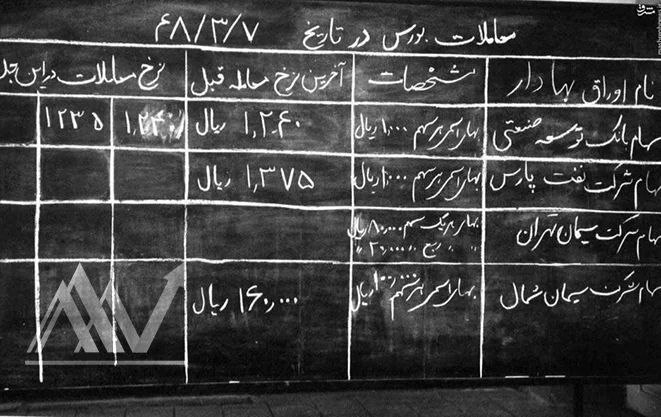 مشرق
معاملات بورس در تاریخ ۴۸/۳/۷
نام اوراق بهادار مشخصات آخرین نرخ معامله قبل نرخ معاملات در این
سهام بانک توسعه صنعتی بهای اسمی هر سهم ۱,۰۰۰ ریال ۱,۲۴۰ ریال ۱,۲۴۰ ۱۲۳۵
سهام شرکت نفت پارس بهای اسمی هر سهم ۱,۰۰۰ ریال ۱,۳۷۵ ریال
سهام شرکت سیمان تهران بهای هر یک سهم ۸۰,۰۰۰ ریال
" " ربع " ۲۰,۰۰۰ "
سهام شرکت سیمان شمال بهای اسمی هر سهم ۱۰۰,۰۰۰ ریال ۱۶۰,۰۰۰ ریال